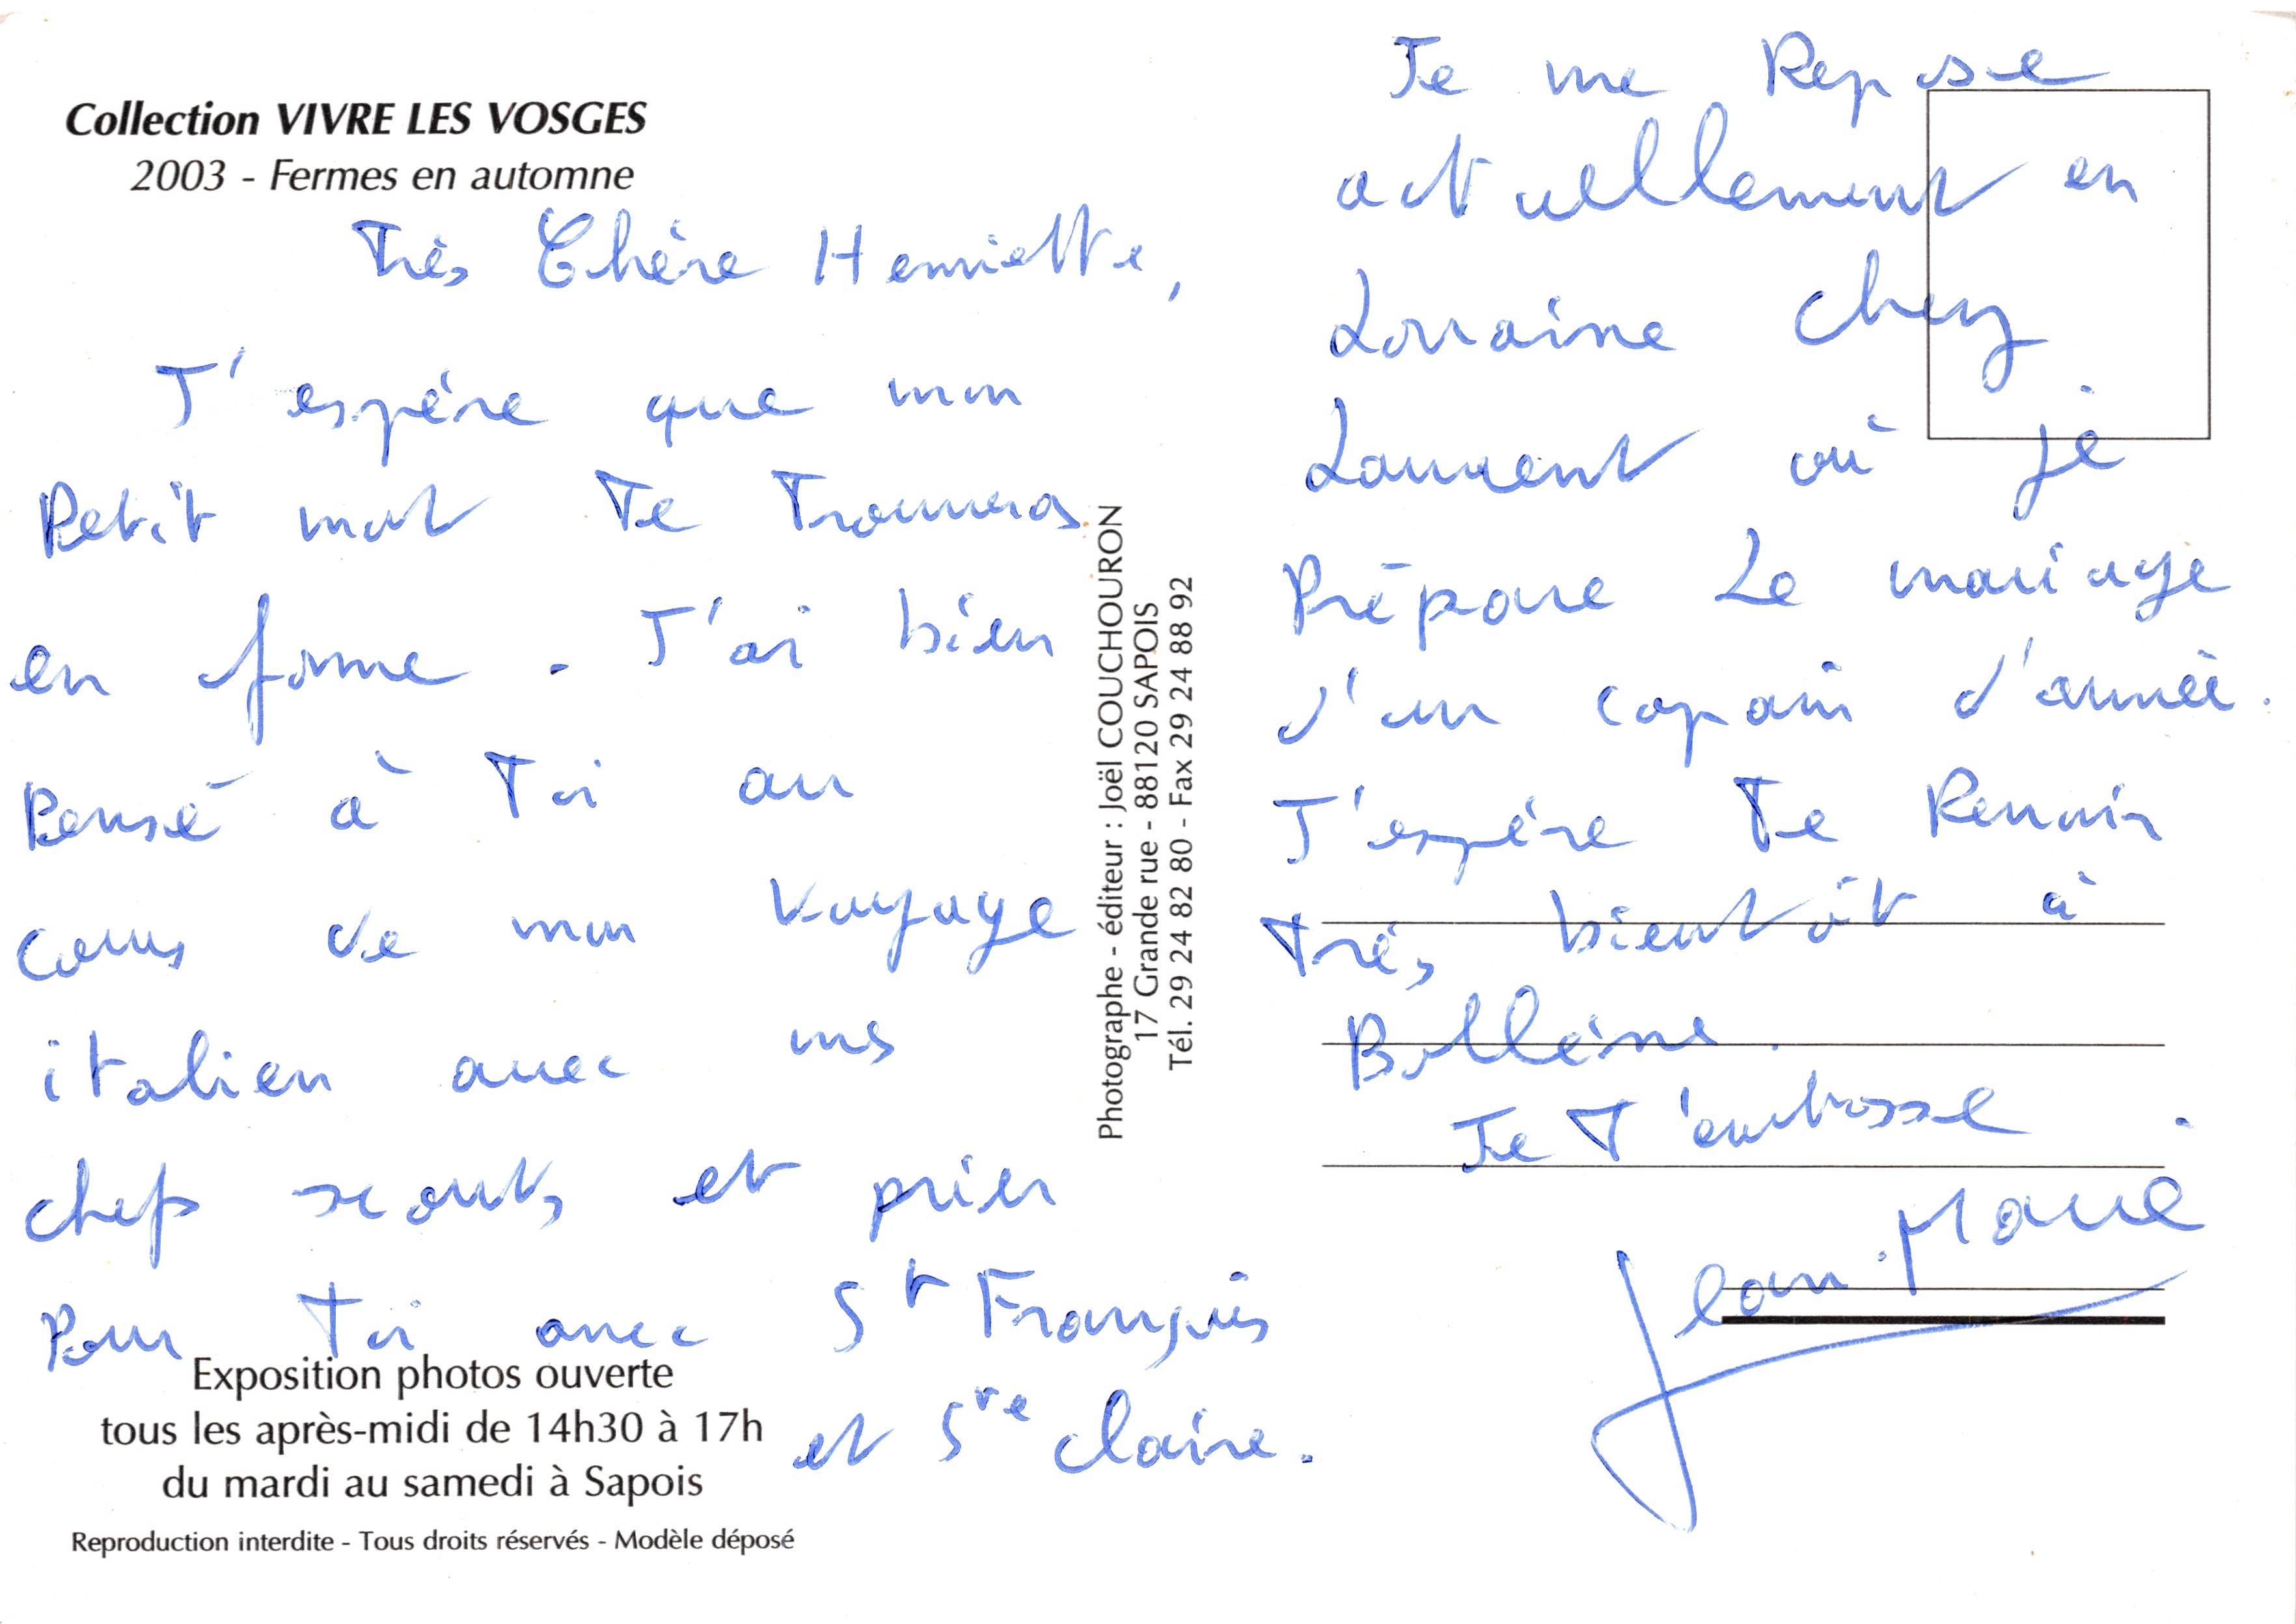 Collection VIVRE LES VOSGES
2003 - Fermes en automne
Très Chère Henriette,
J'espère que mon
Petit mot Te Trouvera
en forme. J'ai bien
Pensé à Toi au
cours de mon voyage
italien avec mes
chefs scouts et prier
Pour Toi avec St François
et Ste Claire.
Exposition photos ouverte
tous les après-midi de 14h30 à 17h
du mardi au samedi à Sapois
Reproduction interdite - Tous droits réservés - Modèle déposé
Photographe - éditeur : Joël COUCHOURON
17 Grande rue - 88120 SAPOIS
Tél. 29 24 82 80 - Fax 29 24 88 92
Je me Repose
actuellement en
Lorraine chez
Laurent où je
Prépare Le mariage
d'un copain d'année.
J'espère Te Revoir
Très bientôt à
Bollène.
Je T'embrasse.
Jean-Marie